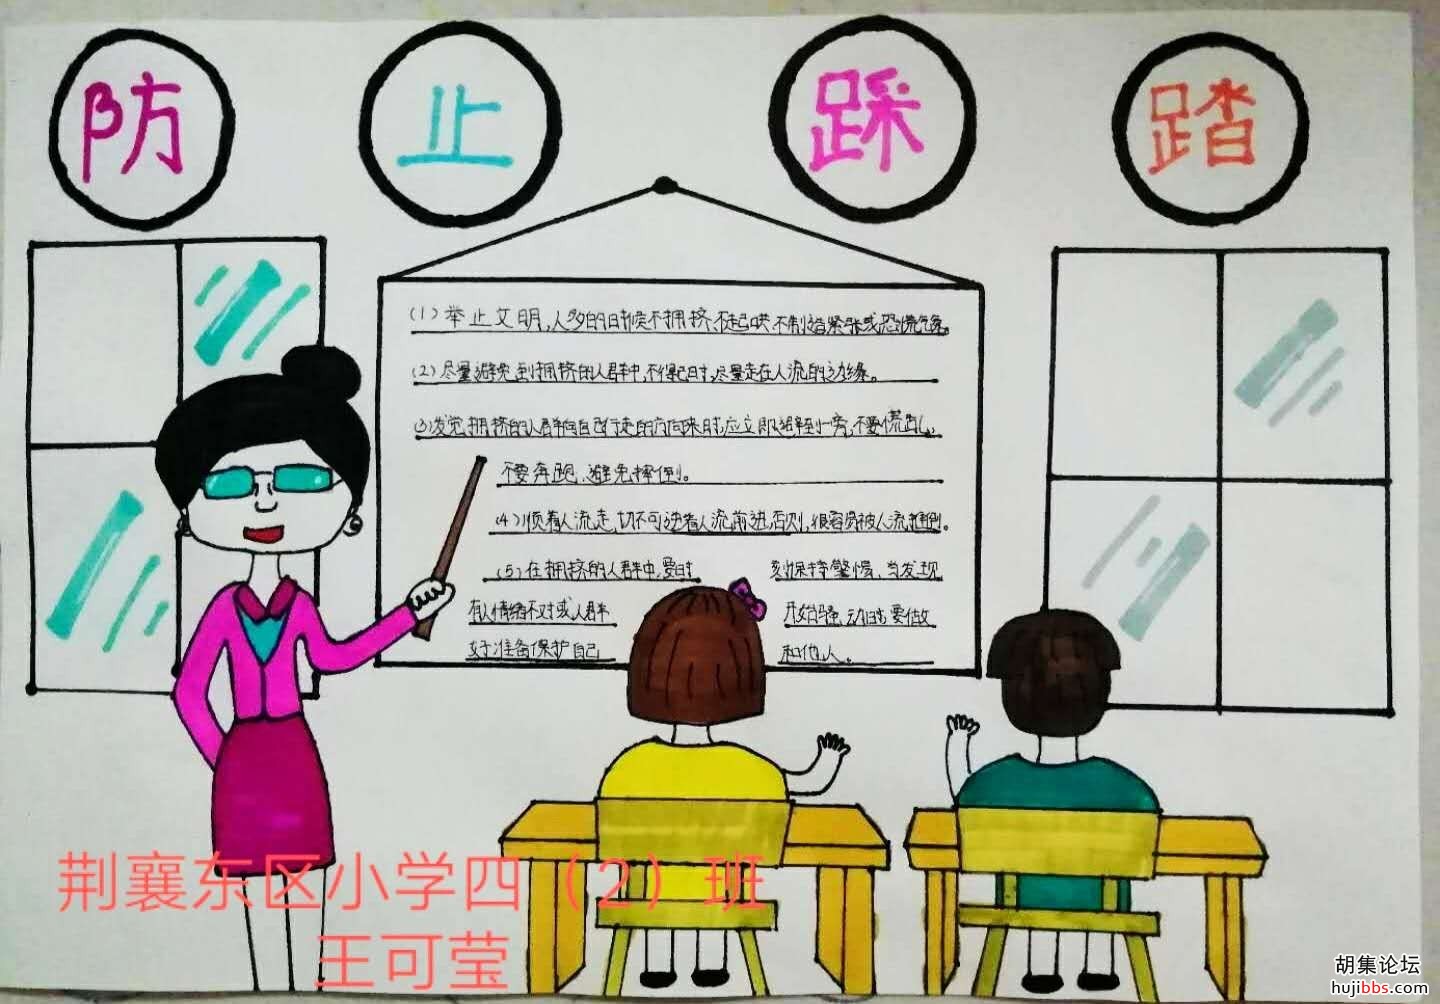 防 止 踩 踏
(1)举止文明,人多的时候不拥挤,不起哄,不制造紧张或恐慌气氛。
(2)尽量避免到拥挤的人群中,不得已时,尽量走在人流的边缘。
(3)发觉拥挤的人群向自己行走的方向来时,应立即避到一旁,不要慌乱,
不要奔跑,避免摔倒。
(4)顺着人流走,切不可逆着人流前进,否则,很容易被人流推倒。
(5)在拥挤的人群中,要时刻保持警惕,当发现
有人情绪不对或人群开始骚动时,要做
好准备保护自己和他人。
荆襄东区小学四(2)班
王可莹
胡集论坛
hujibbs.com